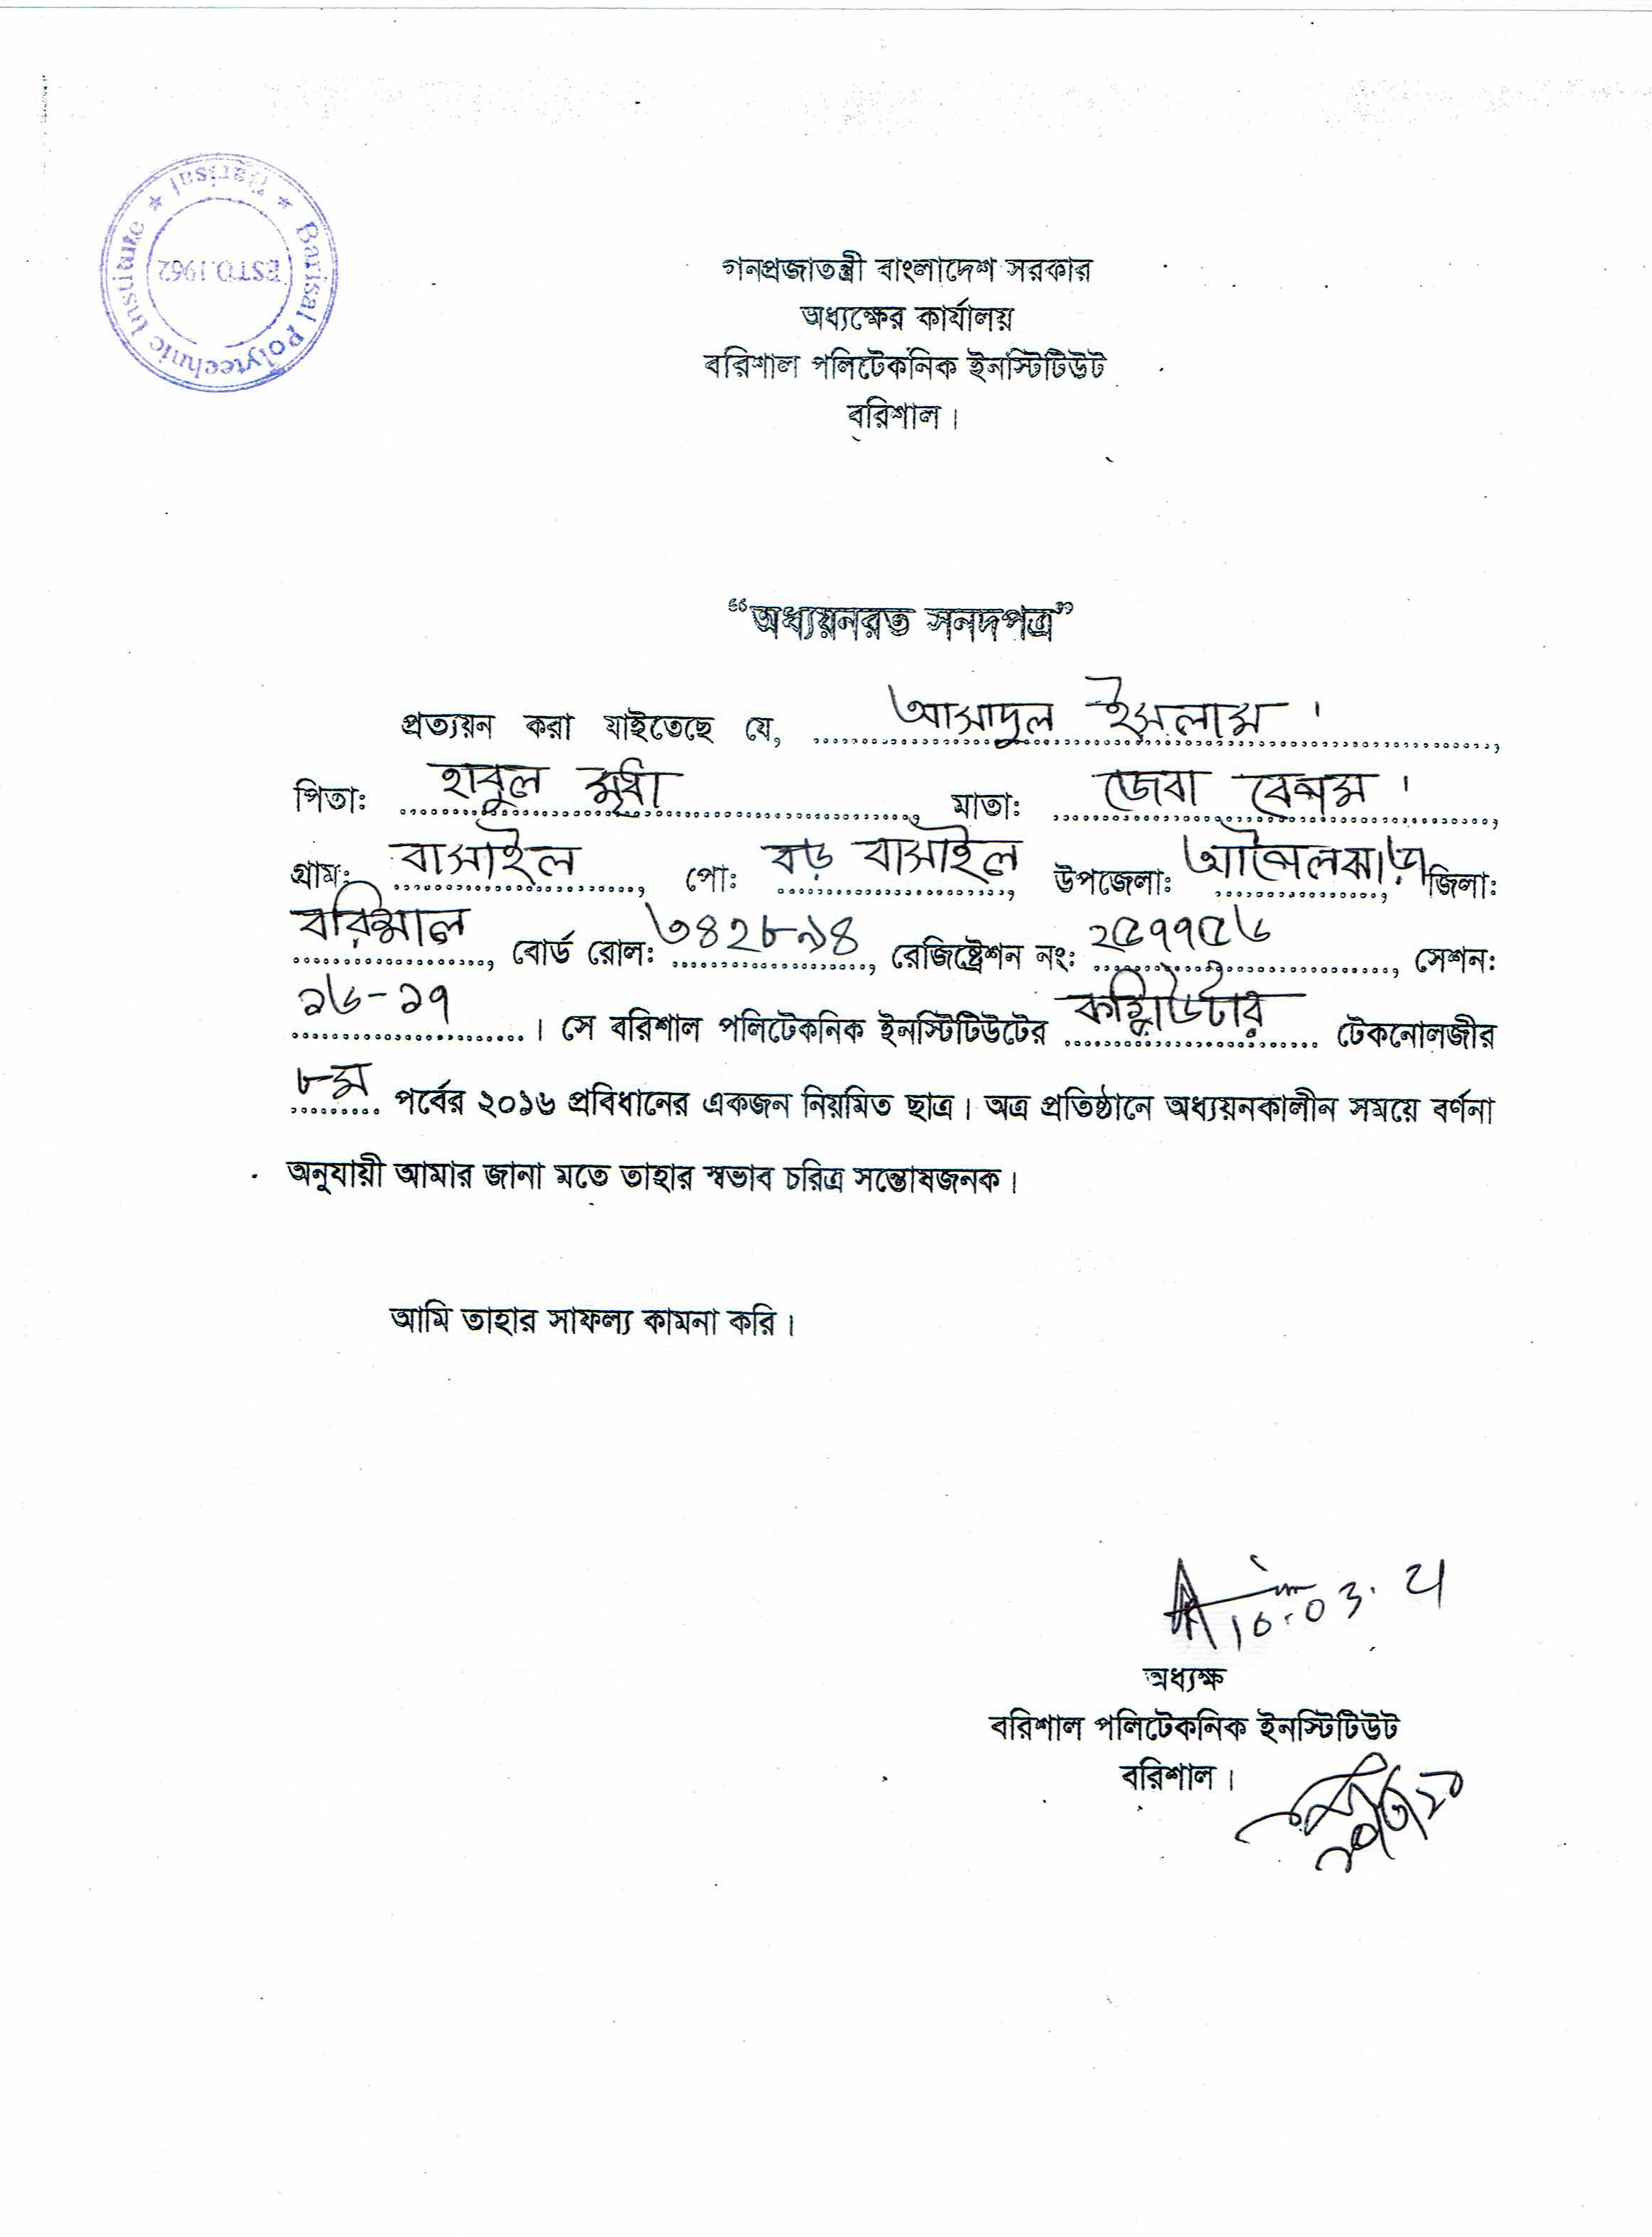 Barisal Polytechnic Institute ★ Barisal ★
ESTD.1962
গনপ্রজাতন্ত্রী বাংলাদেশ সরকার
অধ্যক্ষের কার্যালয়
বরিশাল পলিটেকনিক ইনস্টিটিউট
বরিশাল।
“অধ্যয়নরত সনদপত্র”
প্রত্যয়ন করা যাইতেছে যে, আসাদুল ইসলাম।,
পিতা: হাবুল মৃধা, মাতা: জেবা বেগম।,
গ্রাম: বাসাইল, পো: বড় বাসাইল, উপজেলা: আগৈলঝাড়া, জিলা:
বরিশাল, বোর্ড রোল: ৩৪২৮৯৪, রেজিষ্ট্রেশন নং: ২৫৭৭৫৬, সেশন:
১৬-১৭। সে বরিশাল পলিটেকনিক ইনস্টিটিউটের কম্পিউটার টেকনোলজীর
৮ম পর্বের ২০১৬ প্রবিধানের একজন নিয়মিত ছাত্র। অত্র প্রতিষ্ঠানে অধ্যয়নকালীন সময়ে বর্ণনা
অনুযায়ী আমার জানা মতে তাহার স্বভাব চরিত্র সন্তোষজনক।
আমি তাহার সাফল্য কামনা করি।
10.03.21
অধ্যক্ষ
বরিশাল পলিটেকনিক ইনস্টিটিউট
বরিশাল।